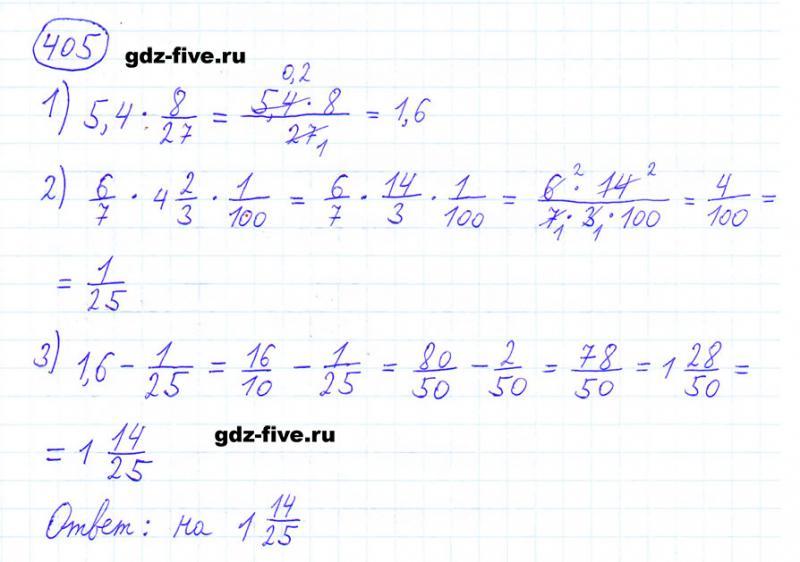 405 gdz-five.ru
1) 5,4 · 8/27 = 5,4 · 8 / 27 = 1,6
0,2
1
2) 6/7 · 4 2/3 · 1/100 = 6/7 · 14/3 · 1/100 = 6² · 14² / 7₁ · 3₁ · 100 = 4/100 =
= 1/25
3) 1,6 − 1/25 = 16/10 − 1/25 = 80/50 − 2/50 = 78/50 = 1 28/50 =
= 1 14/25 gdz-five.ru
Ответ: на 1 14/25